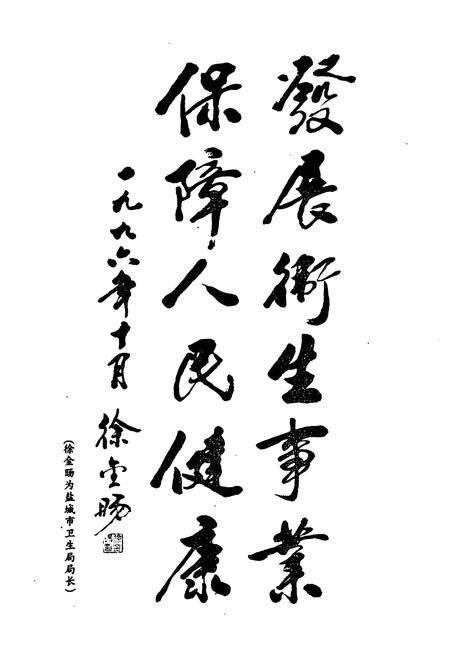 發展衛生事業
保障人民健康
一九九六年十月
徐金旸
(徐金旸为盐城市卫生局局长)